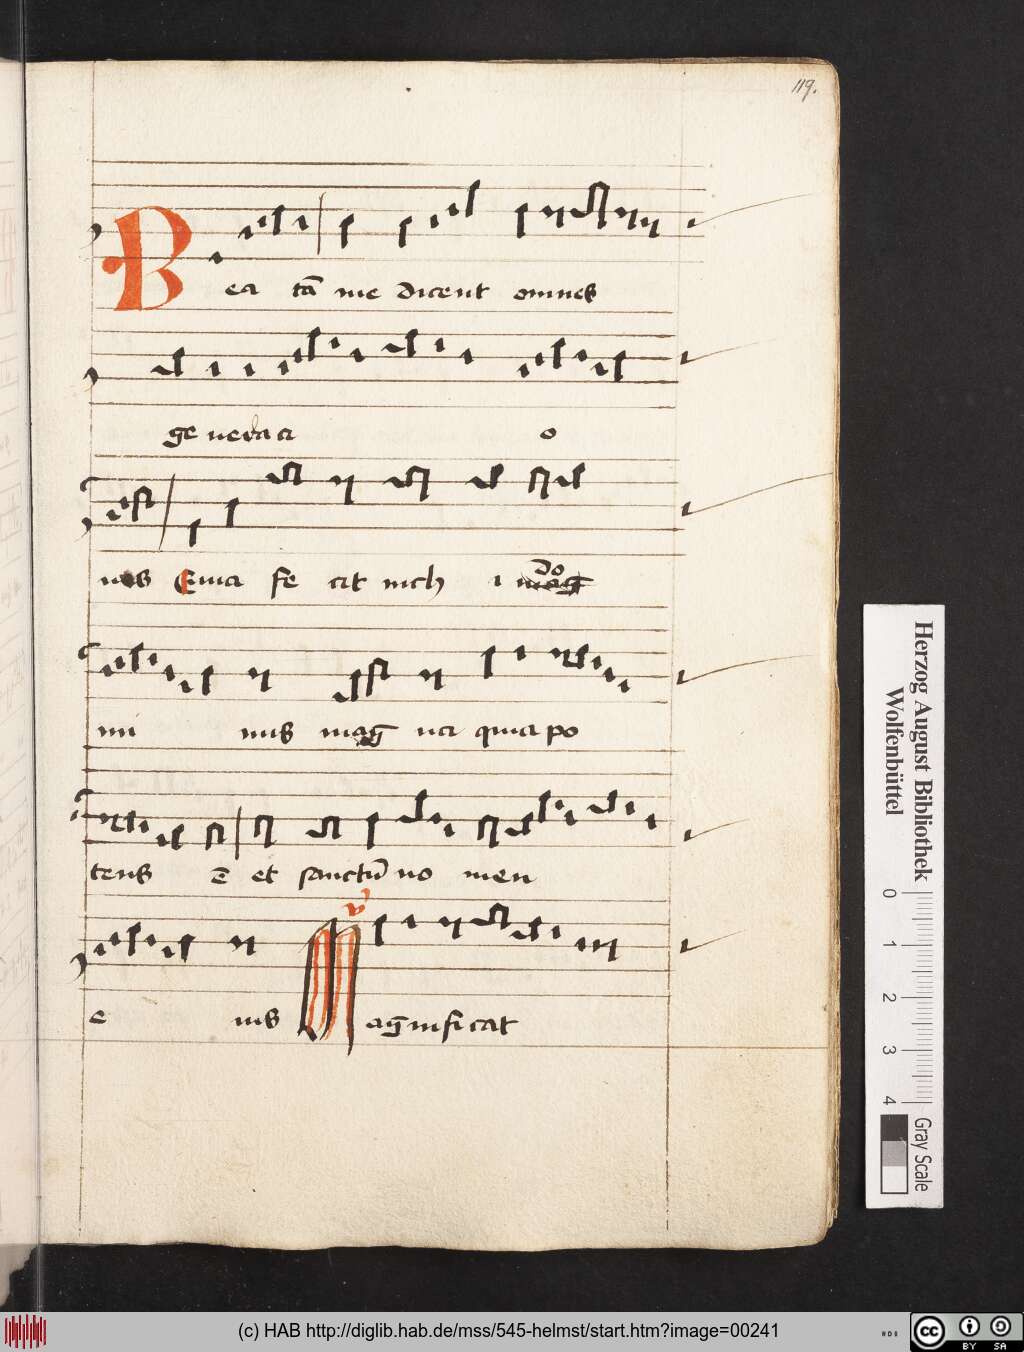 119.
Bea tā me dicent omnes
ge neracı o
nes Quia fe cit mich i do
mi nus mag na quia po
tens ē et sanctū no men
e ius V Magnificat
Herzog August Bibliothek
Wolfenbüttel
0 1 2 3 4
Gray Scale
(c) HAB http://diglib.hab.de/mss/545-helmst/start.htm?image=00241
cc BY SA